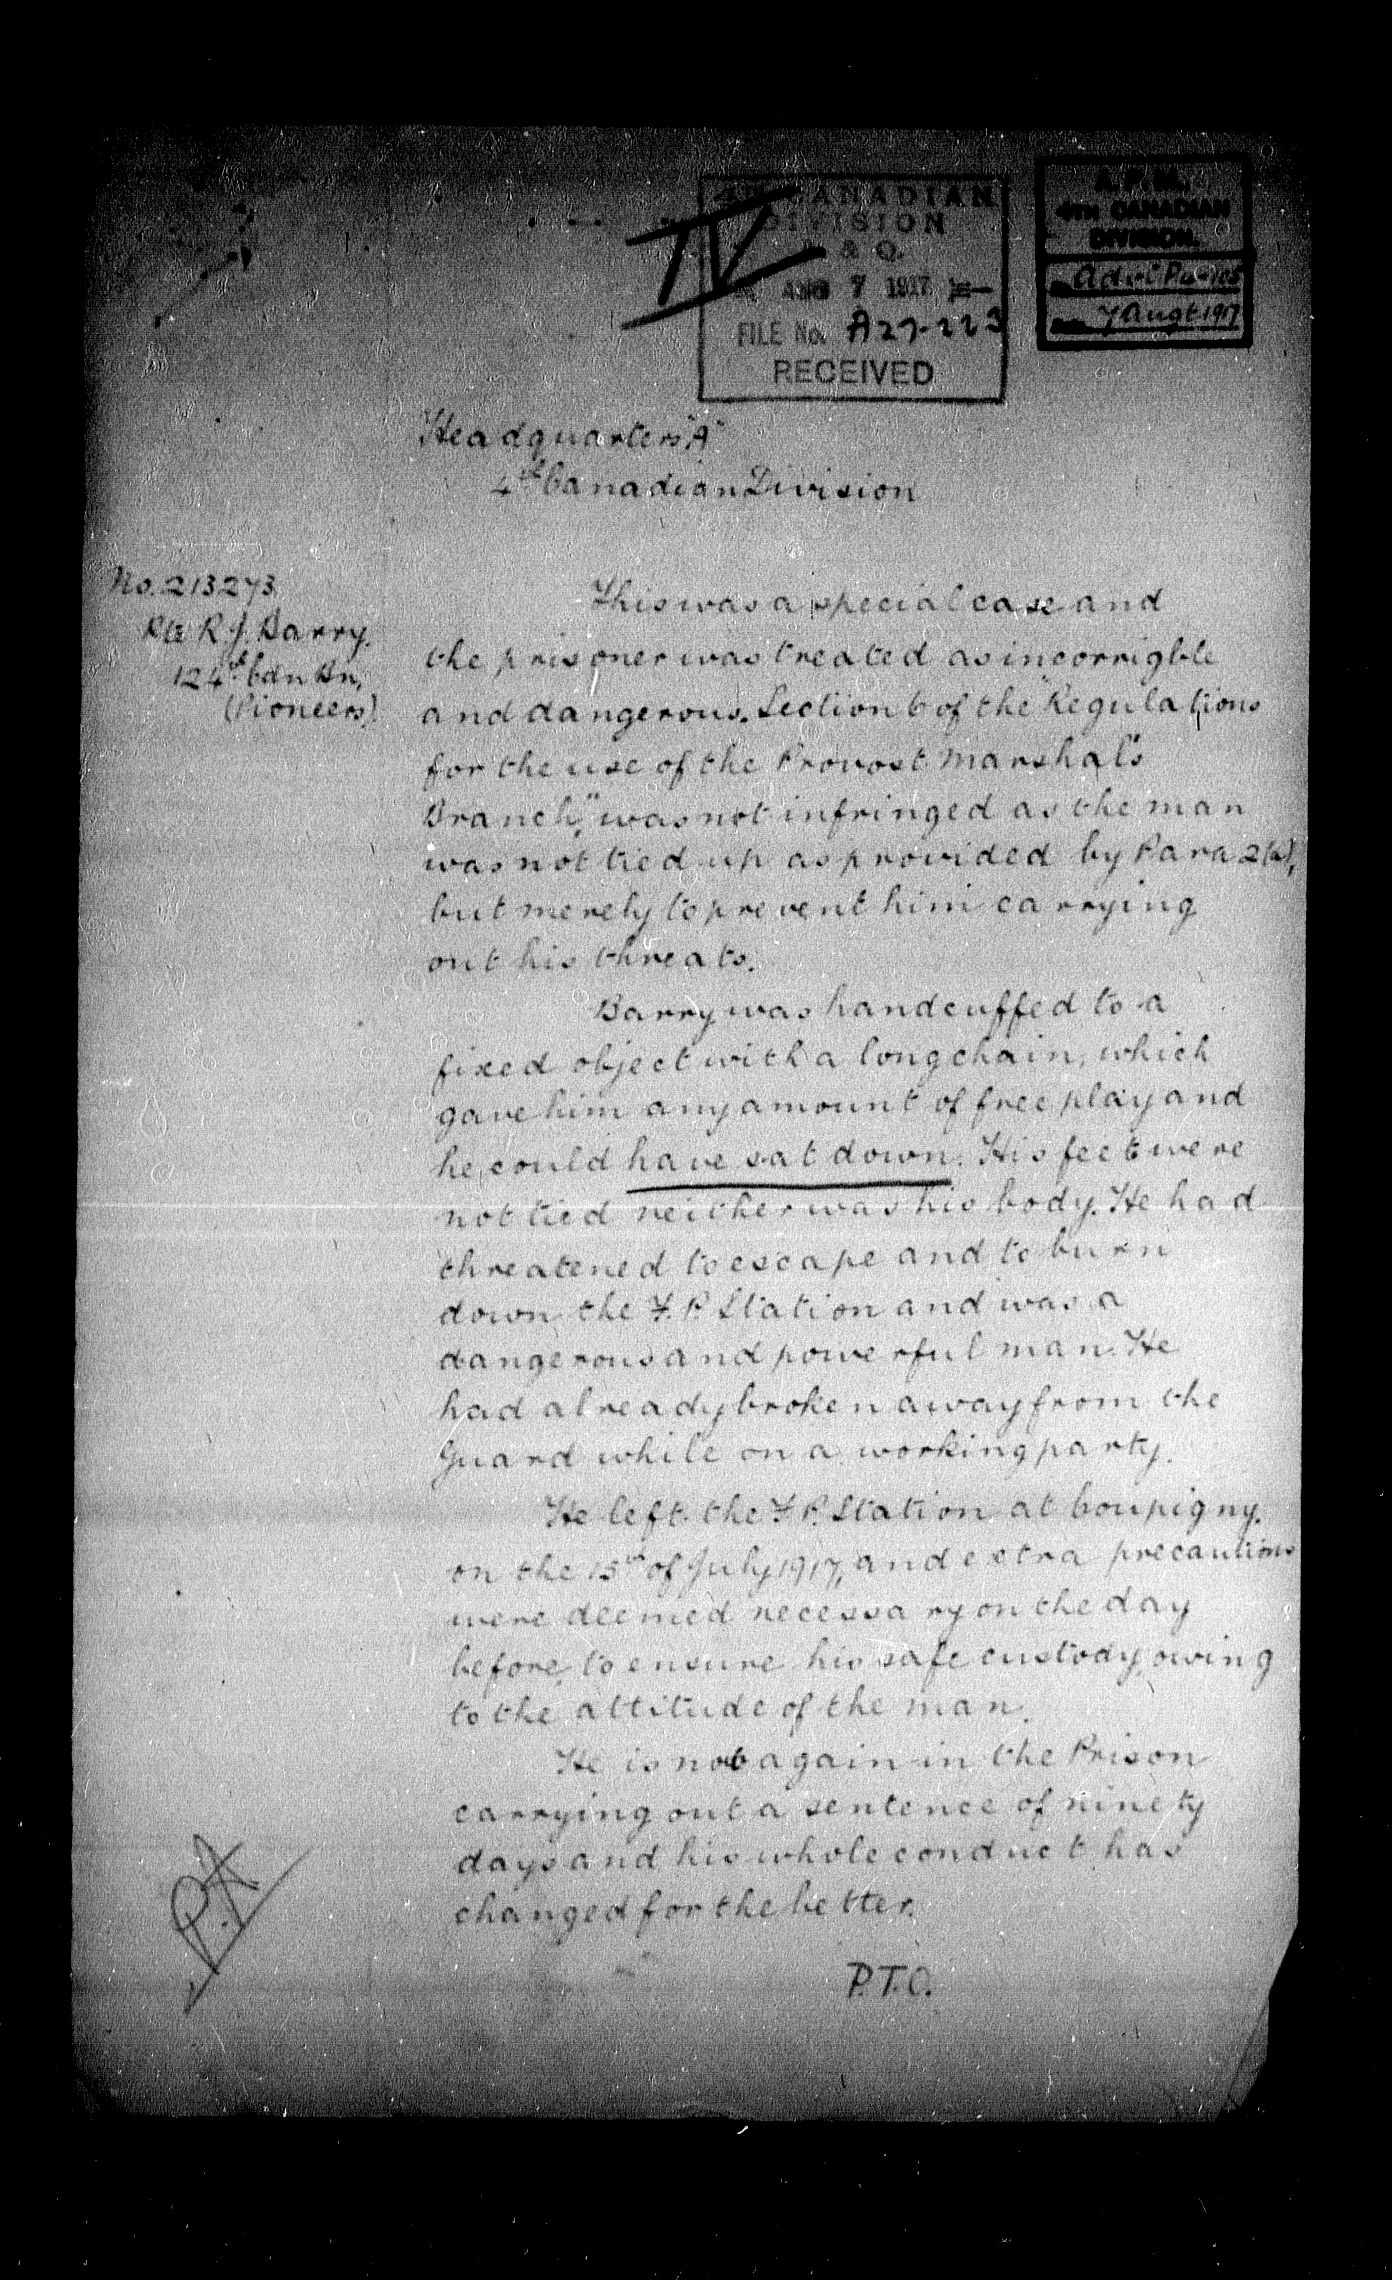 4TH CANADIAN
DIVISION
& Q.
IV
AUG 7 1917
FILE No. A27-223
RECEIVED
A. P. M.,
4TH CANADIAN
DIVISION.
7 Augt 1917
Headquarters "A"
4th Canadian Division
No. 213273
Pte R. J. Barry.
124th Cdn Bn,
(Pioneers)
This was a special case and
the prisoner was treated as incorrigble
and dangerous. Section 6 of the "Regulations
for the use of the Provost Marshal's
Branch," was not infringed as the man
was not tied up as provided by Para 2(a),
but merely to prevent him carrying
out his threats.
Barry was handcuffed to a
fixed object with a long chain, which
gave him any amount of free play and
he could have sat down. His feet were
not tied neither was his body. He had
threatened to escape and to burn
down the F.P. Station and was a
dangerous and powerful man. He
had already broken away from the
Guard while on a working party.
He left the F.P. Station at Coupigny.
on the 15th of July 1917, and extra precautions
were deemed necessary on the day
before, to ensure his safe custody, owing
to the attitude of the man.
He is now again in the Prison
carrying out a sentence of ninety
days and his whole conduct has
changed for the better.
P.T.O.